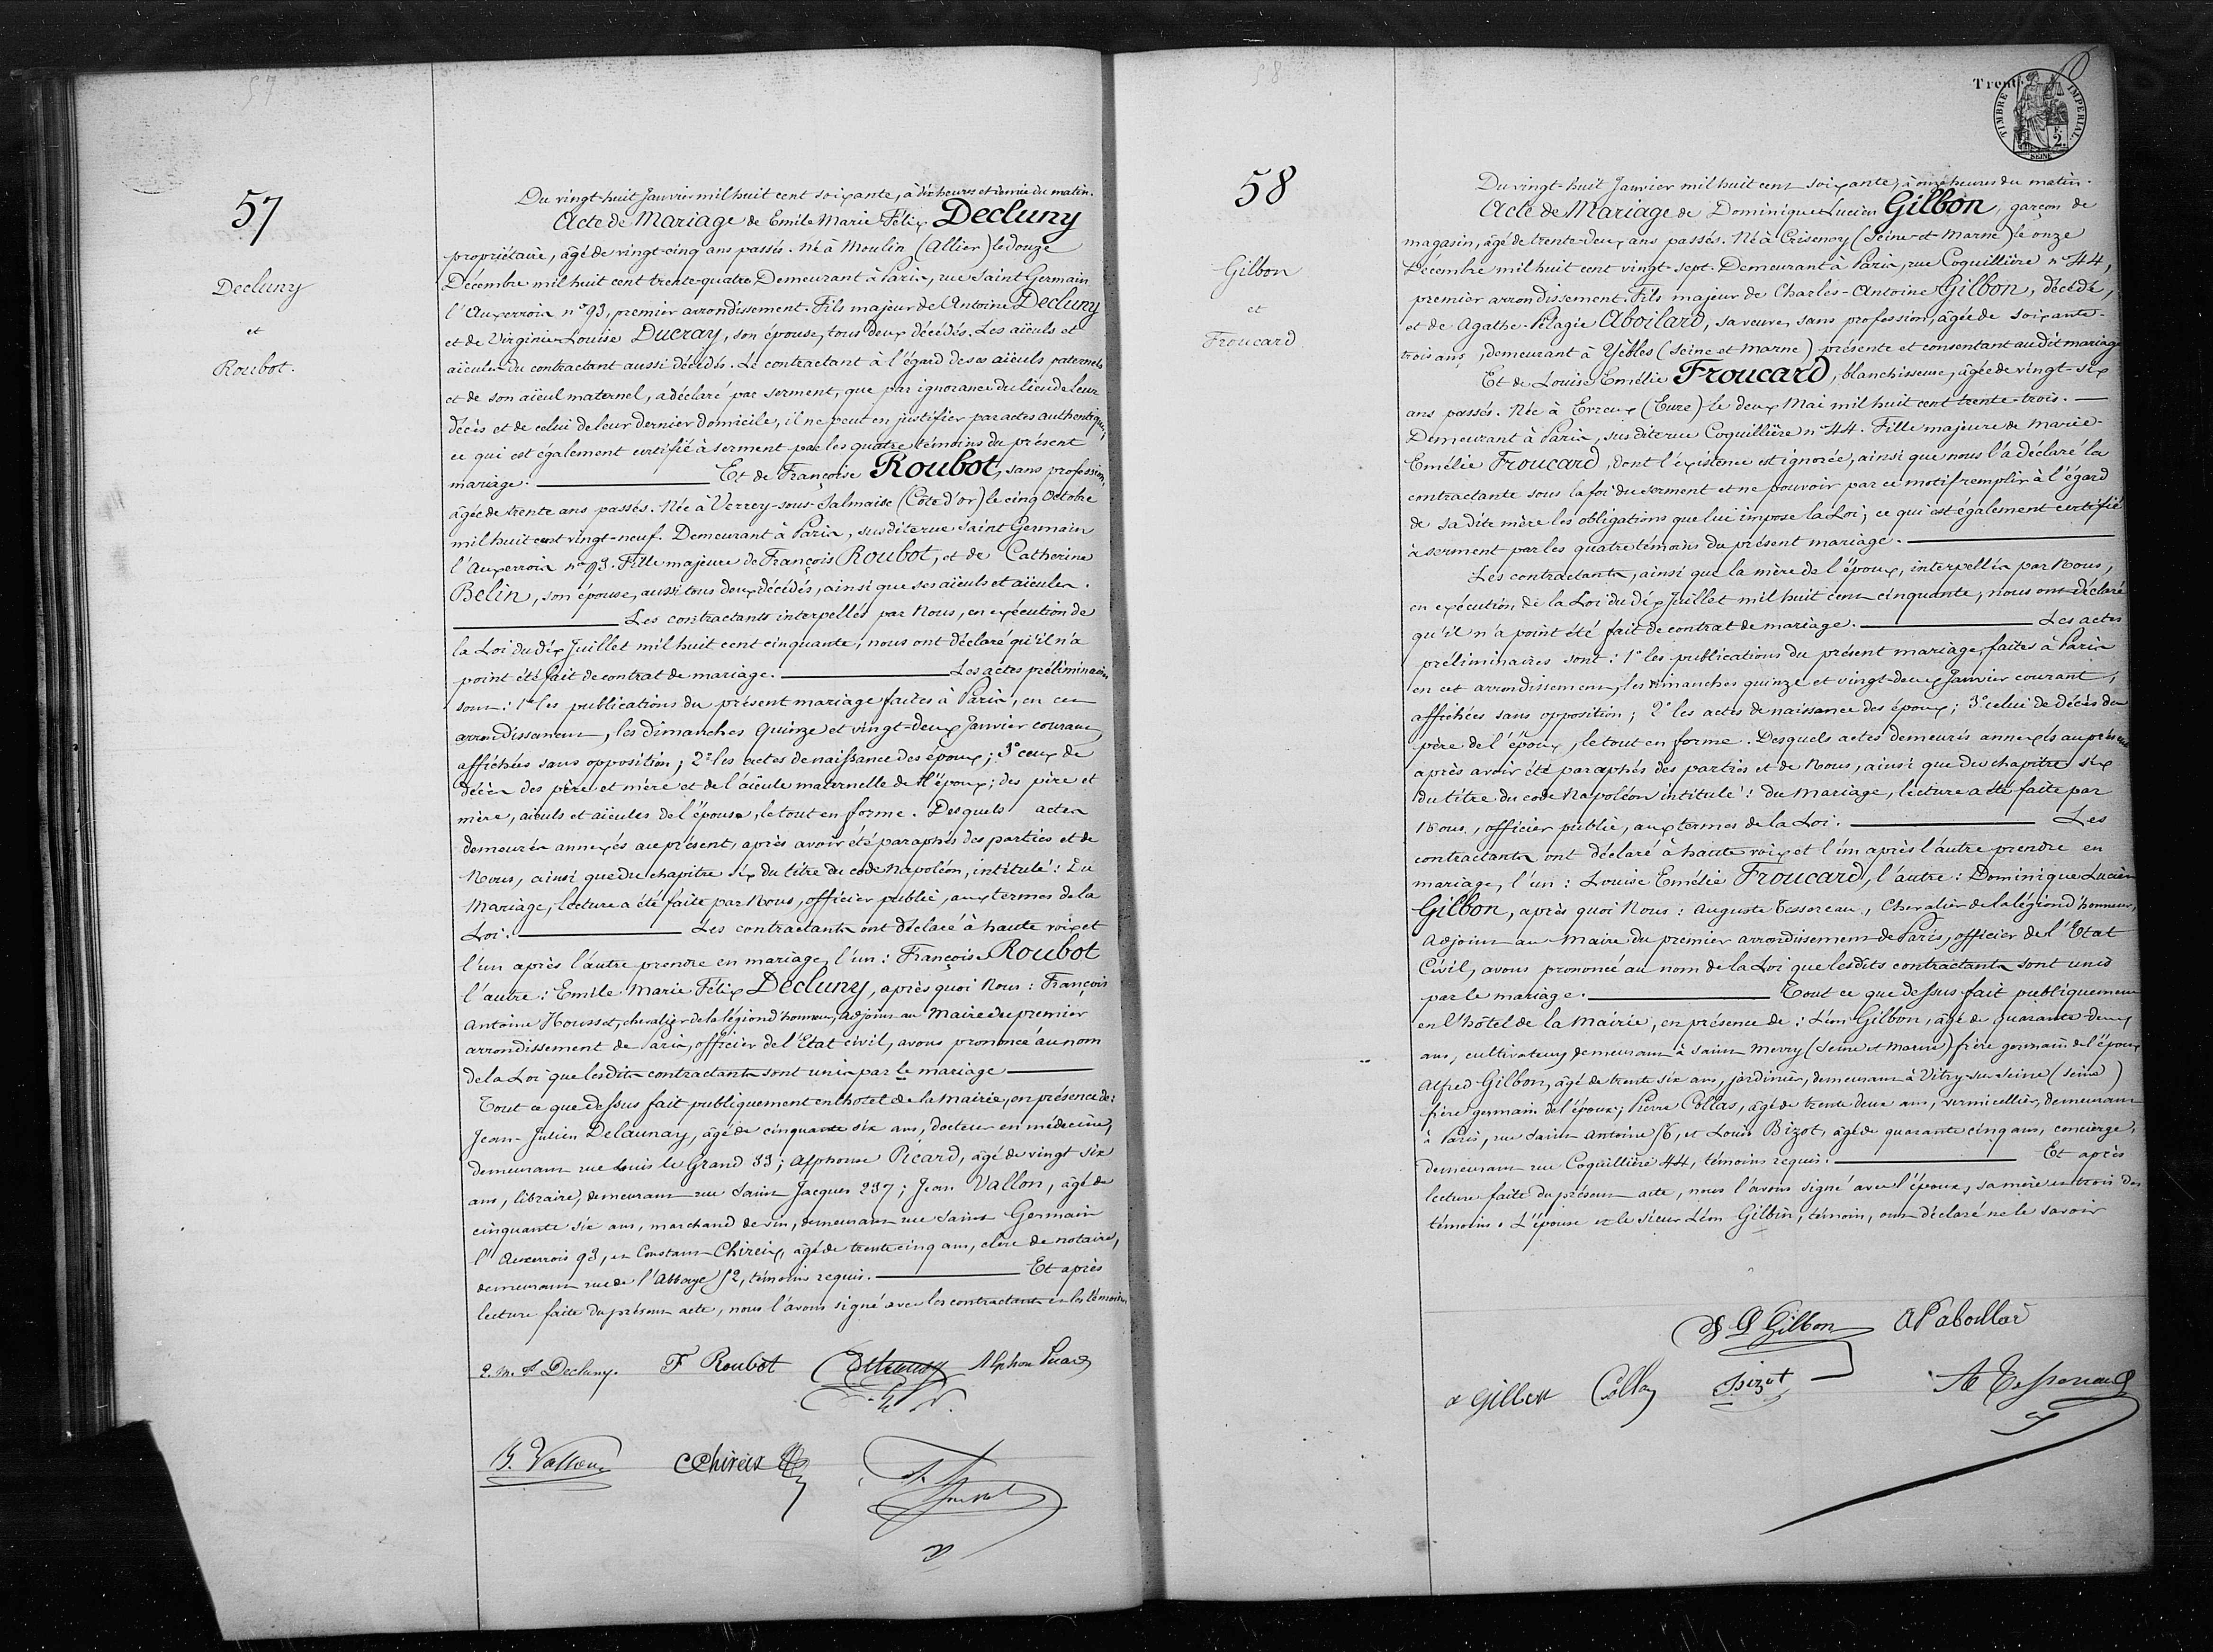 57
57
Decluny
et
Roubot.
Du vingt-huit Janvier mil huit cent soixante, à dix heures et demie du matin.
Acte de Mariage de Emile Marie Félix Decluny
propriétaire, âgé de vingt-cinq ans passés. Né à Moulin (Allier) le douze
Décembre mil huit cent trente-quatre. Demeurant à Paris, rue Saint Germain
l'Auxerrois n° 93, premier arrondissement. Fils majeur de Antoine Decluny
et de Virginie Louise Ducray, son épouse, tous deux décédés. Les aïeuls et
aïeules du contractant aussi décédés. Le contractant à l'égard de ses aïeuls paternels
et de son aïeul maternel, a déclaré par serment, que par ignorance du lieu de leur
décès et de celui de leur dernier domicile, il ne peut en justifier par actes authentiques;
ce qui est également certifié à serment par les quatre témoins du présent
mariage. Et de Françoise Roubot, sans profession,
âgée de trente ans passés. Née à Verrey-sous-Salmaise (Côte d'or) le cinq Octobre
mil huit cent vingt-neuf. Demeurant à Paris, susdite rue Saint Germain
l'Auxerrois n° 93. Fille majeure de François Roubot, et de Catherine
Belin, son épouse, aussi tous deux décédés, ainsi que ses aïeuls et aïeules.
Les contractants interpellés par Nous, en exécution de
la Loi du dix Juillet mil huit cent cinquante, nous ont déclaré qu'il n'a
point été fait de contrat de mariage. Les actes préliminaires
sont: 1° les publications du présent mariage faites à Paris, en cet
arrondissement, les dimanches quinze et vingt-deux Janvier courant,
affichées sans opposition; 2° les actes de naissance des époux; 3° ceux de
décès des père et mère et de l'aïeule maternelle de l'époux; des père et
mère, aïeuls et aïeules de l'épouse, le tout en forme. Desquels actes
demeurés annexés au présent, après avoir été paraphés des parties et de
Nous, ainsi que du chapitre six du titre du code Napoléon, intitulé: Du
Mariage, lecture a été faite par Nous, officier public, aux termes de la
Loi. Les contractants ont déclaré à haute voix et
l'un après l'autre prendre en mariage, l'un: Françoise Roubot
l'autre: Emile Marie Félix Decluny, après quoi Nous: François
Antoine Housset, chevalier de la légion d'honneur, adjoint au Maire du premier
arrondissement de Paris, officier de l'Etat civil, avons prononcé au nom
de la Loi que lesdits contractants sont unis par le mariage
Tout ce que dessus fait publiquement en l'hotel de la Mairie, en présence de:
Jean-Julien Delaunay, âgé de cinquante six ans, docteur en médecine,
demeurant rue Louis le Grand 33; Alphonse Picard, âgé de vingt six
ans, libraire, demeurant rue Saint Jacques 237; Jean Vallon, âgé de
cinquante six ans, marchand de vin, demeurant rue Saint Germain
l'Auxerrois 93, et Constant Chireix, âgé de trente cinq ans, clerc de notaire,
demeurant rue de l'Abbaye 12, témoins requis. Et après
lecture faite du présent acte, nous l'avons signé avec les contractants et les témoins.
E. M. F. Decluny. F Roubot Alphon Picard
CChireix
58
Trent
TIMBRE IMPERIAL
2.
SEINE
58
Gilbon
et
Froucard
Du vingt-huit Janvier mil huit cent soixante, à onze heures du matin.
Acte de Mariage de Dominique Lucien Gilbon, garçon de
magasin, âgé de trente-deux ans passés. Né à Crisenoy (Seine-et-Marne) le onze
Décembre mil huit cent vingt-sept. Demeurant à Paris, rue Coquillière n° 44,
premier arrondissement. Fils majeur de Charles-Antoine Gilbon, décédé,
et de Agathe-Pélagie Aboilard, sa veuve, sans profession, âgée de soixante-
trois ans, demeurant à Yebles (Seine et Marne) présente et consentant audit mariage
Et de Louise Emélie Froucard, blanchisseuse, âgée de vingt-six
ans passés. Née à Evreux (Eure) le deux Mai mil huit cent trente-trois.
Demeurant à Paris, susdite rue Coquillière n° 44. Fille majeure de Marie-
Emélie Froucard, dont l'existence est ignorée, ainsi que nous l'a déclaré la
contractante sous la foi du serment et ne pouvoir par ce motif remplir à l'égard
de sa dite mère les obligations que lui impose la Loi; ce qui est également certifié
à serment par les quatre témoins du présent mariage.
Les contractants, ainsi que la mère de l'époux, interpellés par Nous,
en exécution de la Loi du dix Juillet mil huit cent cinquante, nous ont déclaré
qu'il n'a point été fait de contrat de mariage. Les actes
préliminaires sont: 1° les publications du présent mariage, faites à Paris
en cet arrondissement, les dimanches quinze et vingt-deux Janvier courant,
affichées sans opposition; 2° les actes de naissance des époux; 3° celui de décès du
père de l'époux, le tout en forme. Desquels actes demeurés annexés au présent
après avoir été paraphés des parties et de Nous, ainsi que du chapitre six
du titre du code Napoléon intitulé: Du Mariage, lecture a été faite par
Nous, officier public, aux termes de la Loi. Les
contractants ont déclaré à haute voix et l'un après l'autre prendre en
mariage, l'un: Louise Emélie Froucard, l'autre: Dominique Lucien
Gilbon, après quoi Nous: Auguste Tessereau, Chevalier de la légion d'honneur,
Adjoint au Maire du premier arrondissement de Paris, officier de l'Etat
Civil, avons prononcé au nom de la Loi que lesdits contractants sont unis
par le mariage. Tout ce que dessus fait publiquement
en l'hôtel de la Mairie, en présence de: Léon Gilbon, âgé de quarante-deux
ans, cultivateur, demeurant à Saint Merry (Seine et Marne) frère germain de l'époux
Alfred Gilbon, âgé de trente six ans, jardinier, demeurant à Vitry-sur-Seine (Seine)
frère germain de l'époux; Pierre Collas, âgé de trente deux ans, vermicellier, demeurant
à Paris, rue Saint Antoine, et Louis Bizot, âgé de quarante cinq ans, concierge,
demeurant rue Coquillière 44, témoins requis. Et après
lecture faite du présent acte, nous l'avons signé avec l'époux, sa mère et trois des
témoins. L'épouse et le sieur Léon Gilbon, témoin, ont déclaré ne le savoir
Gilbon
Bizot